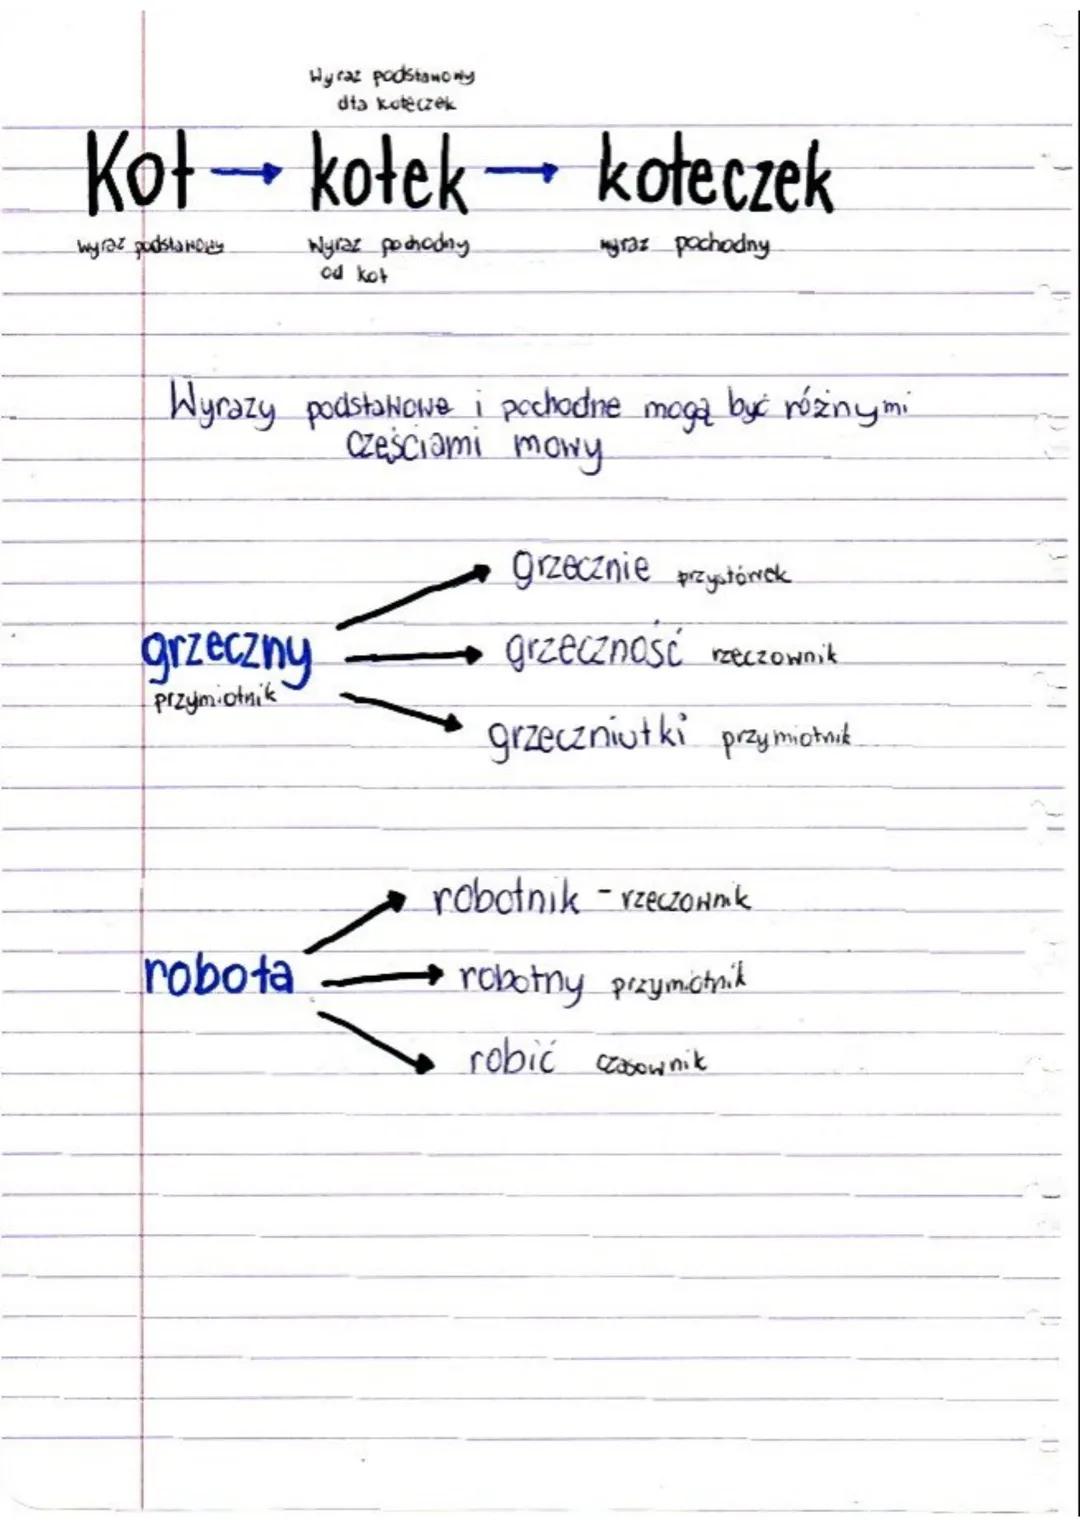 Wyraz podstawowy
dla koteczek
Kot → kotek → koteczek
wyraz podstawowy Wyraz pochodny wyraz pochodny
od kot
Wyrazy podstawowe i pochodne mogą być różnymi
częściami mowy
grzecznie przysłówek
grzeczny grzeczność rzeczownik
przymiotnik
grzeczniutki przymiotnik
robotnik - rzeczownik
robota robotny przymiotnik
robić czasownik